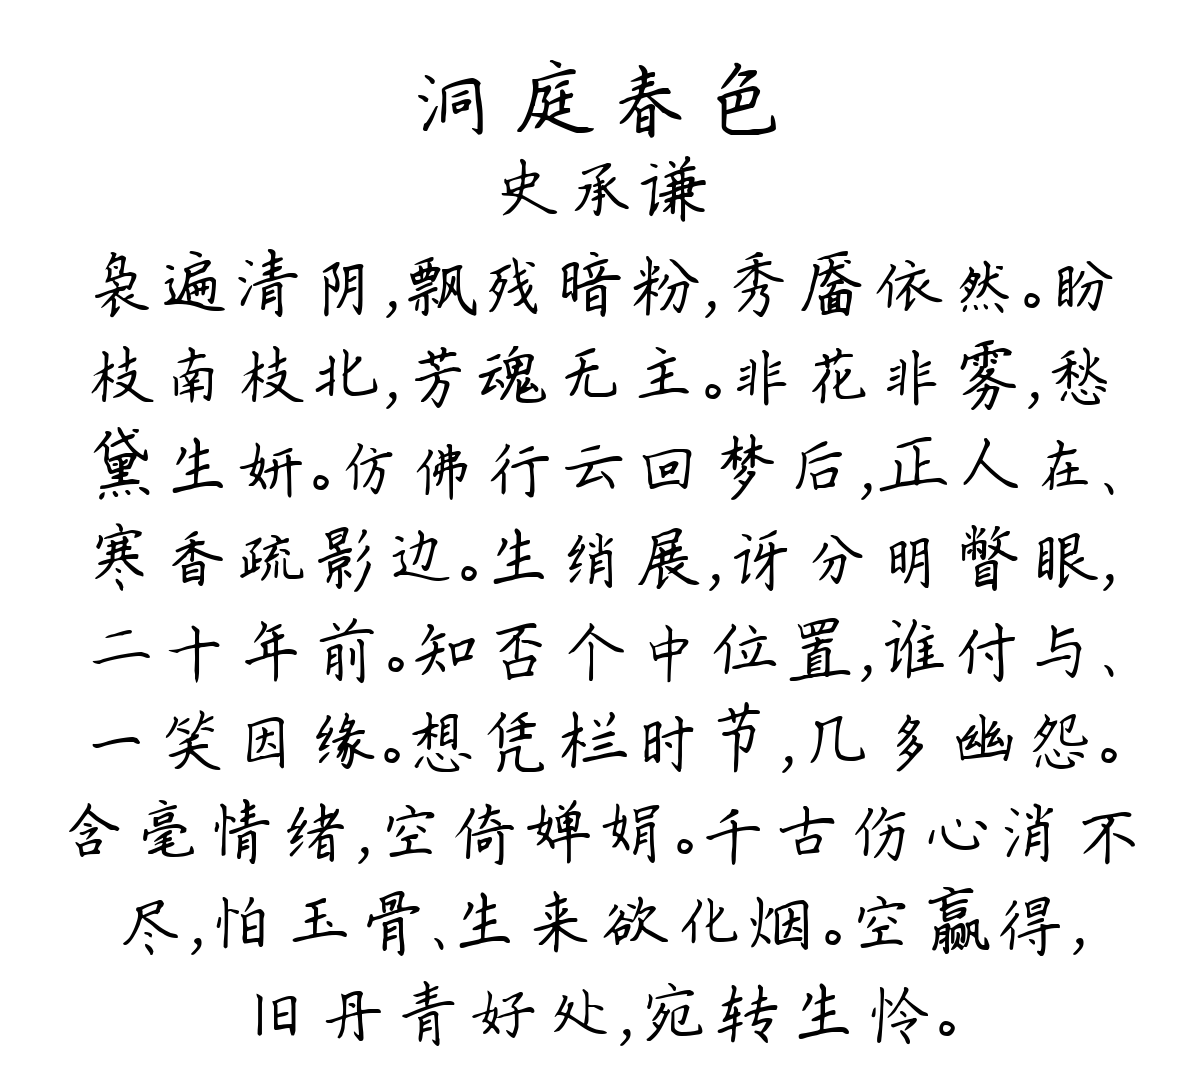 洞庭春色
史承谦
袅遍清阴,飘残暗粉,秀靥依然。盼
枝南枝北,芳魂无主。非花非雾,愁
黛生妍。仿佛行云回梦后,正人在、
寒香疏影边。生绡展,讶分明瞥眼,
二十年前。知否个中位置,谁付与、
一笑因缘。想凭栏时节,几多幽怨。
含毫情绪,空倚婵娟。千古伤心消不
尽,怕玉骨、生来欲化烟。空赢得,
旧丹青好处,宛转生怜。